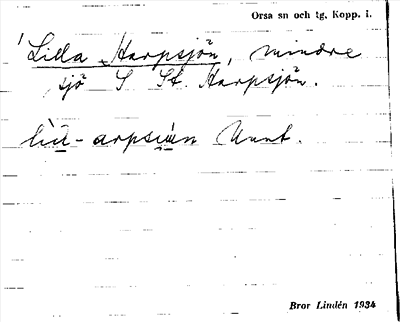 Orsa sn och tg, Kopp. i.
Lilla Harpsjön, mindre
sjö S St. Harpsjön.
Bror Lindén 1934